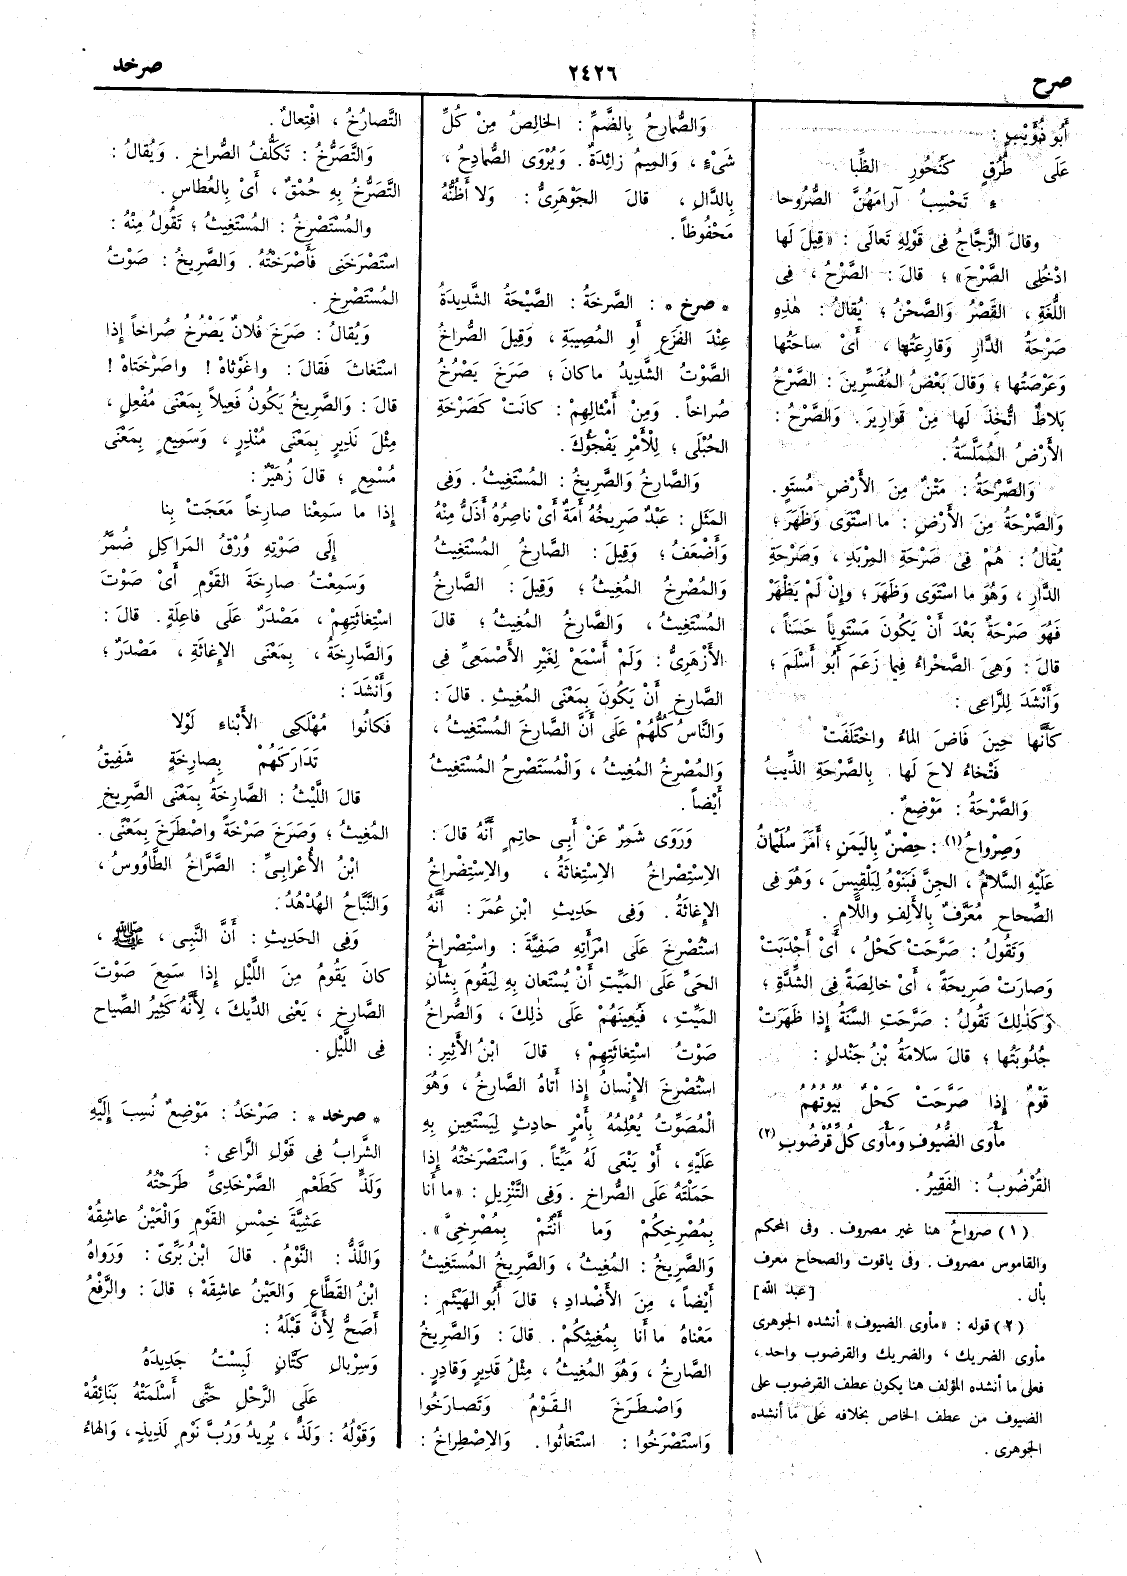 صرح
٢٤٢٦
صرخد
أَبُو ذُؤَيْبٍ :
عَلَى طُرُقٍ كَنُحُورِ الظِّبا
ءِ تَحْسِبُ آرامَهُنَّ الصُّرُوحا
وقالَ الزَّجَّاجُ فِى قَوْلِهِ تَعالَى : «قِيلَ لَها
ادْخُلِى الصَّرْحَ» ؛ قالَ : الصَّرْحُ ، فِى
اللُّغَةِ ، القَصْرُ وَالصَّحْنُ ؛ يُقالُ : هٰذِهِ
صَرْحَةُ الدَّارِ وَقارِعَتُها ، أَىْ ساحَتُها
وَعَرْصَتُها ؛ وَقالَ بَعْضُ المُفَسِّرِينَ : الصَّرْحُ
بَلاطٌ اتُّخِذَ لَها مِنْ قَوارِيرَ . وَالصَّرْحُ :
الأَرْضُ المُمَلَّسَةُ .
وَالصَّرْحَةُ : مَتْنٌ مِنَ الأَرْضِ مُسْتَوٍ .
وَالصَّرْحَةُ مِنَ الأَرْضِ : ما اسْتَوَى وَظَهَرَ ؛
يُقالُ : هُمْ فِى صَرْحَةِ المِرْبَدِ ، وَصَرْحَةِ
الدَّارِ ، وَهُوَ ما اسْتَوَى وَظَهَرَ ؛ وإِنْ لَمْ يَظْهَرْ
فَهُوَ صَرْحَةٌ بَعْدَ أَنْ يَكُونَ مُسْتَوِياً حَسَناً ،
قالَ : وَهِىَ الصَّحْراءُ فِيما زَعَمَ أَبُو أَسْلَمَ ؛
وَأَنْشَدَ لِلرَّاعِى :
كَأَنَّها حِينَ فَاضَ الماءُ واخْتَلَفَتْ
فَتْخاءُ لاحَ لَها بِالصَّرْحَةِ الذِّيبُ
وَالصَّرْحَةُ : مَوْضِعٌ .
وَصِرْواحُ(١) : حِصْنٌ بِاليَمَنِ ؛ أَمَرَ سُلَيْمانُ
عَلَيْهِ السَّلامُ ، الجِنَّ فَبَنَوْهُ لِبَلْقِيسَ ، وَهُوَ فِى
الصِّحاحِ مُعَرَّفٌ بِالأَلِفِ واللَّامِ .
وَتَقُولُ : صَرَّحَتْ كَحْلُ ، أَىْ أَجْدَبَتْ
وَصارَتْ صَرِيحَةً ، أَىْ خالِصَةً فِى الشِّدَّةِ ؛
وَكَذٰلِكَ تَقُولُ : صَرَّحَتِ السَّنَةُ إِذا ظَهَرَتْ
جُدُوبَتُها ؛ قالَ سَلامَةُ بْنُ جَنْدلٍ :
قَوْمٌ إِذا صَرَّحَتْ كَحْلٌ بُيُوتُهُمُ
مَأْوَى الضُّيُوفِ وَمَأْوَى كُلِّ قُرْضُوبِ(٢)
القُرْضُوبُ : الفَقِيرُ .
(١) صرواحُ هنا غير مصروف . وفى المحكم
والقاموس مصروف . وفى ياقوت والصحاح معرف
بأل . [عبد الله]
(٢) قوله : «مأوى الضيوف» أنشده الجوهرى
مأوى الضريك ، والضريك والقرضوب واحد ،
فعلى ما أنشده المؤلف هنا يكون عطف القرضوب على
الضيوف من عطف الخاص بخلافه على ما أنشده
الجوهرى .
وَالصُّمارِحُ بِالضَّمِّ : الخالِصُ مِنْ كُلِّ
شَىْءٍ ، وَالمِيمُ زائِدَةٌ . وَيُرْوَى الصُّمادِحُ ،
بِالدَّالِ ، قالَ الجَوْهَرِىُّ : وَلا أَظُنُّهُ
مَحْفُوظاً .
* صرخ * : الصَّرْخَةُ : الصَّيْحَةُ الشَّدِيدَةُ
عِنْدَ الفَزَعِ أَوِ المُصِيبَةِ ، وَقِيلَ الصُّراخُ
الصَّوْتُ الشَّدِيدُ ما كانَ ؛ صَرَخَ يَصْرُخُ
صُراخاً . وَمِنْ أَمْثالِهِمْ : كانَتْ كَصَرْخَةِ
الحُبْلَى ؛ لِلْأَمْرِ يَفْجَؤُكَ .
وَالصَّارِخُ وَالصَّرِيخُ : المُسْتَغِيثُ . وَفِى
المَثَلِ : عَبْدٌ صَرِيخُهُ أَمَةٌ أَىْ ناصِرُهُ أَذَلُّ مِنْهُ
وَأَضْعَفُ ؛ وَقِيلَ : الصَّارِخُ المُسْتَغِيثُ
وَالمُصْرِخُ المُغِيثُ ؛ وَقِيلَ : الصَّارِخُ
المُسْتَغِيثُ ، وَالصَّارِخُ المُغِيثُ ؛ قالَ
الأَزْهَرِىُّ : وَلَمْ أَسْمَعْ لِغَيْرِ الأَصْمَعِىِّ فِى
الصَّارِخِ أَنْ يَكُونَ بِمَعْنَى المُغِيثِ . قالَ :
وَالنَّاسُ كُلُّهُمْ عَلَى أَنَّ الصَّارِخَ المُسْتَغِيثُ ،
وَالمُصْرِخُ المُغِيثُ ، وَالْمُسْتَصْرِخُ المُسْتَغِيثُ
أَيْضاً .
وَرَوَى شَمِرٌ عَنْ أَبِى حاتِمٍ أَنَّهُ قالَ :
الِاسْتِصْراخُ الِاسْتِغاثَةُ ، والِاسْتِصْراخُ
الإِغاثَةُ . وَفِى حَدِيثِ ابْنِ عُمَرَ : أَنَّهُ
اسْتُصْرِخَ عَلَى امْرَأَتِهِ صَفِيَّةَ : واسْتِصْراخُ
الحَىِّ عَلَى المَيِّتِ أَنْ يُسْتَعانَ بِهِ لِيَقُومَ بِشَأْنِ
المَيِّتِ ، فَيُعِينَهُمْ عَلَى ذٰلِكَ ، وَالصُّراخُ
صَوْتُ اسْتِغاثَتِهِمْ ؛ قالَ ابْنُ الأَثِيرِ :
اسْتُصْرِخَ الإِنْسانُ إِذا أَتاهُ الصَّارِخُ ، وَهُوَ
الْمُصَوِّتُ يُعْلِمُهُ بِأَمْرٍ حادِثٍ لِيَسْتَعِينَ بِهِ
عَلَيْهِ ، أَوْ يَنْعَى لَهُ مَيِّتاً . وَاسْتَصْرَخْتُهُ إِذا
حَمَلْتَهُ عَلَى الصُّراخِ . وَفِى التَّنْزِيلِ : «ما أَنا
بِمُصْرِخِكُمْ وَما أَنْتُمْ بِمُصْرِخِىَّ» .
وَالصَّرِيخُ : المُغِيثُ ، وَالصَّرِيخُ المُسْتَغِيثُ
أَيْضاً ، مِنَ الأَضْدادِ ؛ قالَ أَبُو الهَيْثَمِ :
مَعْناهُ ما أَنا بِمُغِيثِكُمْ . قالَ : وَالصَّرِيخُ
الصَّارِخُ ، وَهُوَ المُغِيثُ ، مِثْلُ قَدِيرٍ وَقادِرٍ .
وَاصْطَرَخَ القَوْمُ وَتَصارَخُوا
وَاسْتَصْرَخُوا : اسْتَغاثُوا . وَالِاصْطِراخُ :
التَّصارُخُ ، افْتِعالٌ .
وَالتَّصَرُّخُ : تَكَلُّفُ الصُّراخِ . وَيُقالُ :
التَّصَرُّخُ بِهِ حُمْقٌ ، أَىْ بِالعُطاسِ .
والمُسْتَصْرِخُ : المُسْتَغِيثُ ؛ تَقُولُ مِنْهُ :
اسْتَصْرَخَنِى فَأَصْرَخْتُهُ . وَالصَّرِيخُ : صَوْتُ
المُسْتَصْرِخِ .
وَيُقالُ : صَرَخَ فُلانٌ يَصْرُخُ صُراخاً إِذا
اسْتَغاثَ فَقالَ : واغَوْثاهْ ! واصَرْخَتاهْ !
قالَ : وَالصَّرِيخُ يَكُونُ فَعِيلاً بِمَعْنَى مُفْعِلٍ ،
مِثْلَ نَذِيرٍ بِمَعْنَى مُنْذِرٍ ، وَسَمِيعٍ بِمَعْنَى
مُسْمِعٍ ؛ قالَ زُهَيْرٌ :
إِذا ما سَمِعْنا صارِخاً مَعَجَتْ بِنا
إِلَى صَوْتِهِ وُرْقُ المَراكِلِ ضُمَّرُ
وَسَمِعْتُ صارِخَةَ القَوْمِ أَىْ صَوْتَ
اسْتِغاثَتِهِمْ ، مَصْدَرٌ عَلَى فاعِلَةٍ . قالَ :
وَالصَّارِخَةُ ، بِمَعْنَى الإِغاثَةِ ، مَصْدَرٌ ؛
وَأَنْشَدَ :
فَكانُوا مُهْلِكِى الأَبْناءِ لَوْلا
تَدَارَكَهُمْ بِصارِخَةٍ شَفِيقُ
قالَ اللَّيْثُ : الصَّارِخَةُ بِمَعْنَى الصَّرِيخِ
المُغِيثِ ؛ وَصَرَخَ صَرْخَةً واصْطَرَخَ بِمَعْنًى .
ابْنُ الأَعْرابِىِّ : الصَّرَّاخُ الطَّاوُوسُ ،
وَالنَّبَّاحُ الهُدْهُدُ .
وَفِى الحَدِيثِ : أَنَّ النَّبِىَّ ، ﷺ ،
كانَ يَقُومُ مِنَ اللَّيْلِ إِذا سَمِعَ صَوْتَ
الصَّارِخِ ، يَعْنِى الدِّيكَ ، لِأَنَّهُ كَثِيرُ الصِّياحِ
فِى اللَّيْلِ .
* صرخد * : صَرْخَدُ : مَوْضِعٌ نُسِبَ إِلَيْهِ
الشَّرابُ فِى قَوْلِ الرَّاعِى :
وَلَذٍّ كَطَعْمِ الصَّرْخَدِىِّ طَرَحْتُهُ
عَشِيَّةَ خِمْسِ القَوْمِ وَالْعَيْنُ عاشِقُهْ
وَاللَّذُّ : النَّوْمُ . قالَ ابْنُ بَرِّىّ : وَرَواهُ
ابْنُ القَطَّاعِ وَالعَيْنُ عاشِقَهْ ؛ قالَ : والرَّفْعُ
أَصَحُّ لِأَنَّ قَبْلَهُ :
وَسِرْبالِ كَتَّانٍ لَبِسْتُ جَدِيدَهُ
عَلَى الرَّحْلِ حَتَّى أَسْلَمَتْهُ بَنائِقُهْ
وَقَوْلُهُ : وَلَذٍّ ، يُرِيدُ وَرُبَّ نَوْمٍ لَذِيذٍ ، وَالهاءُ